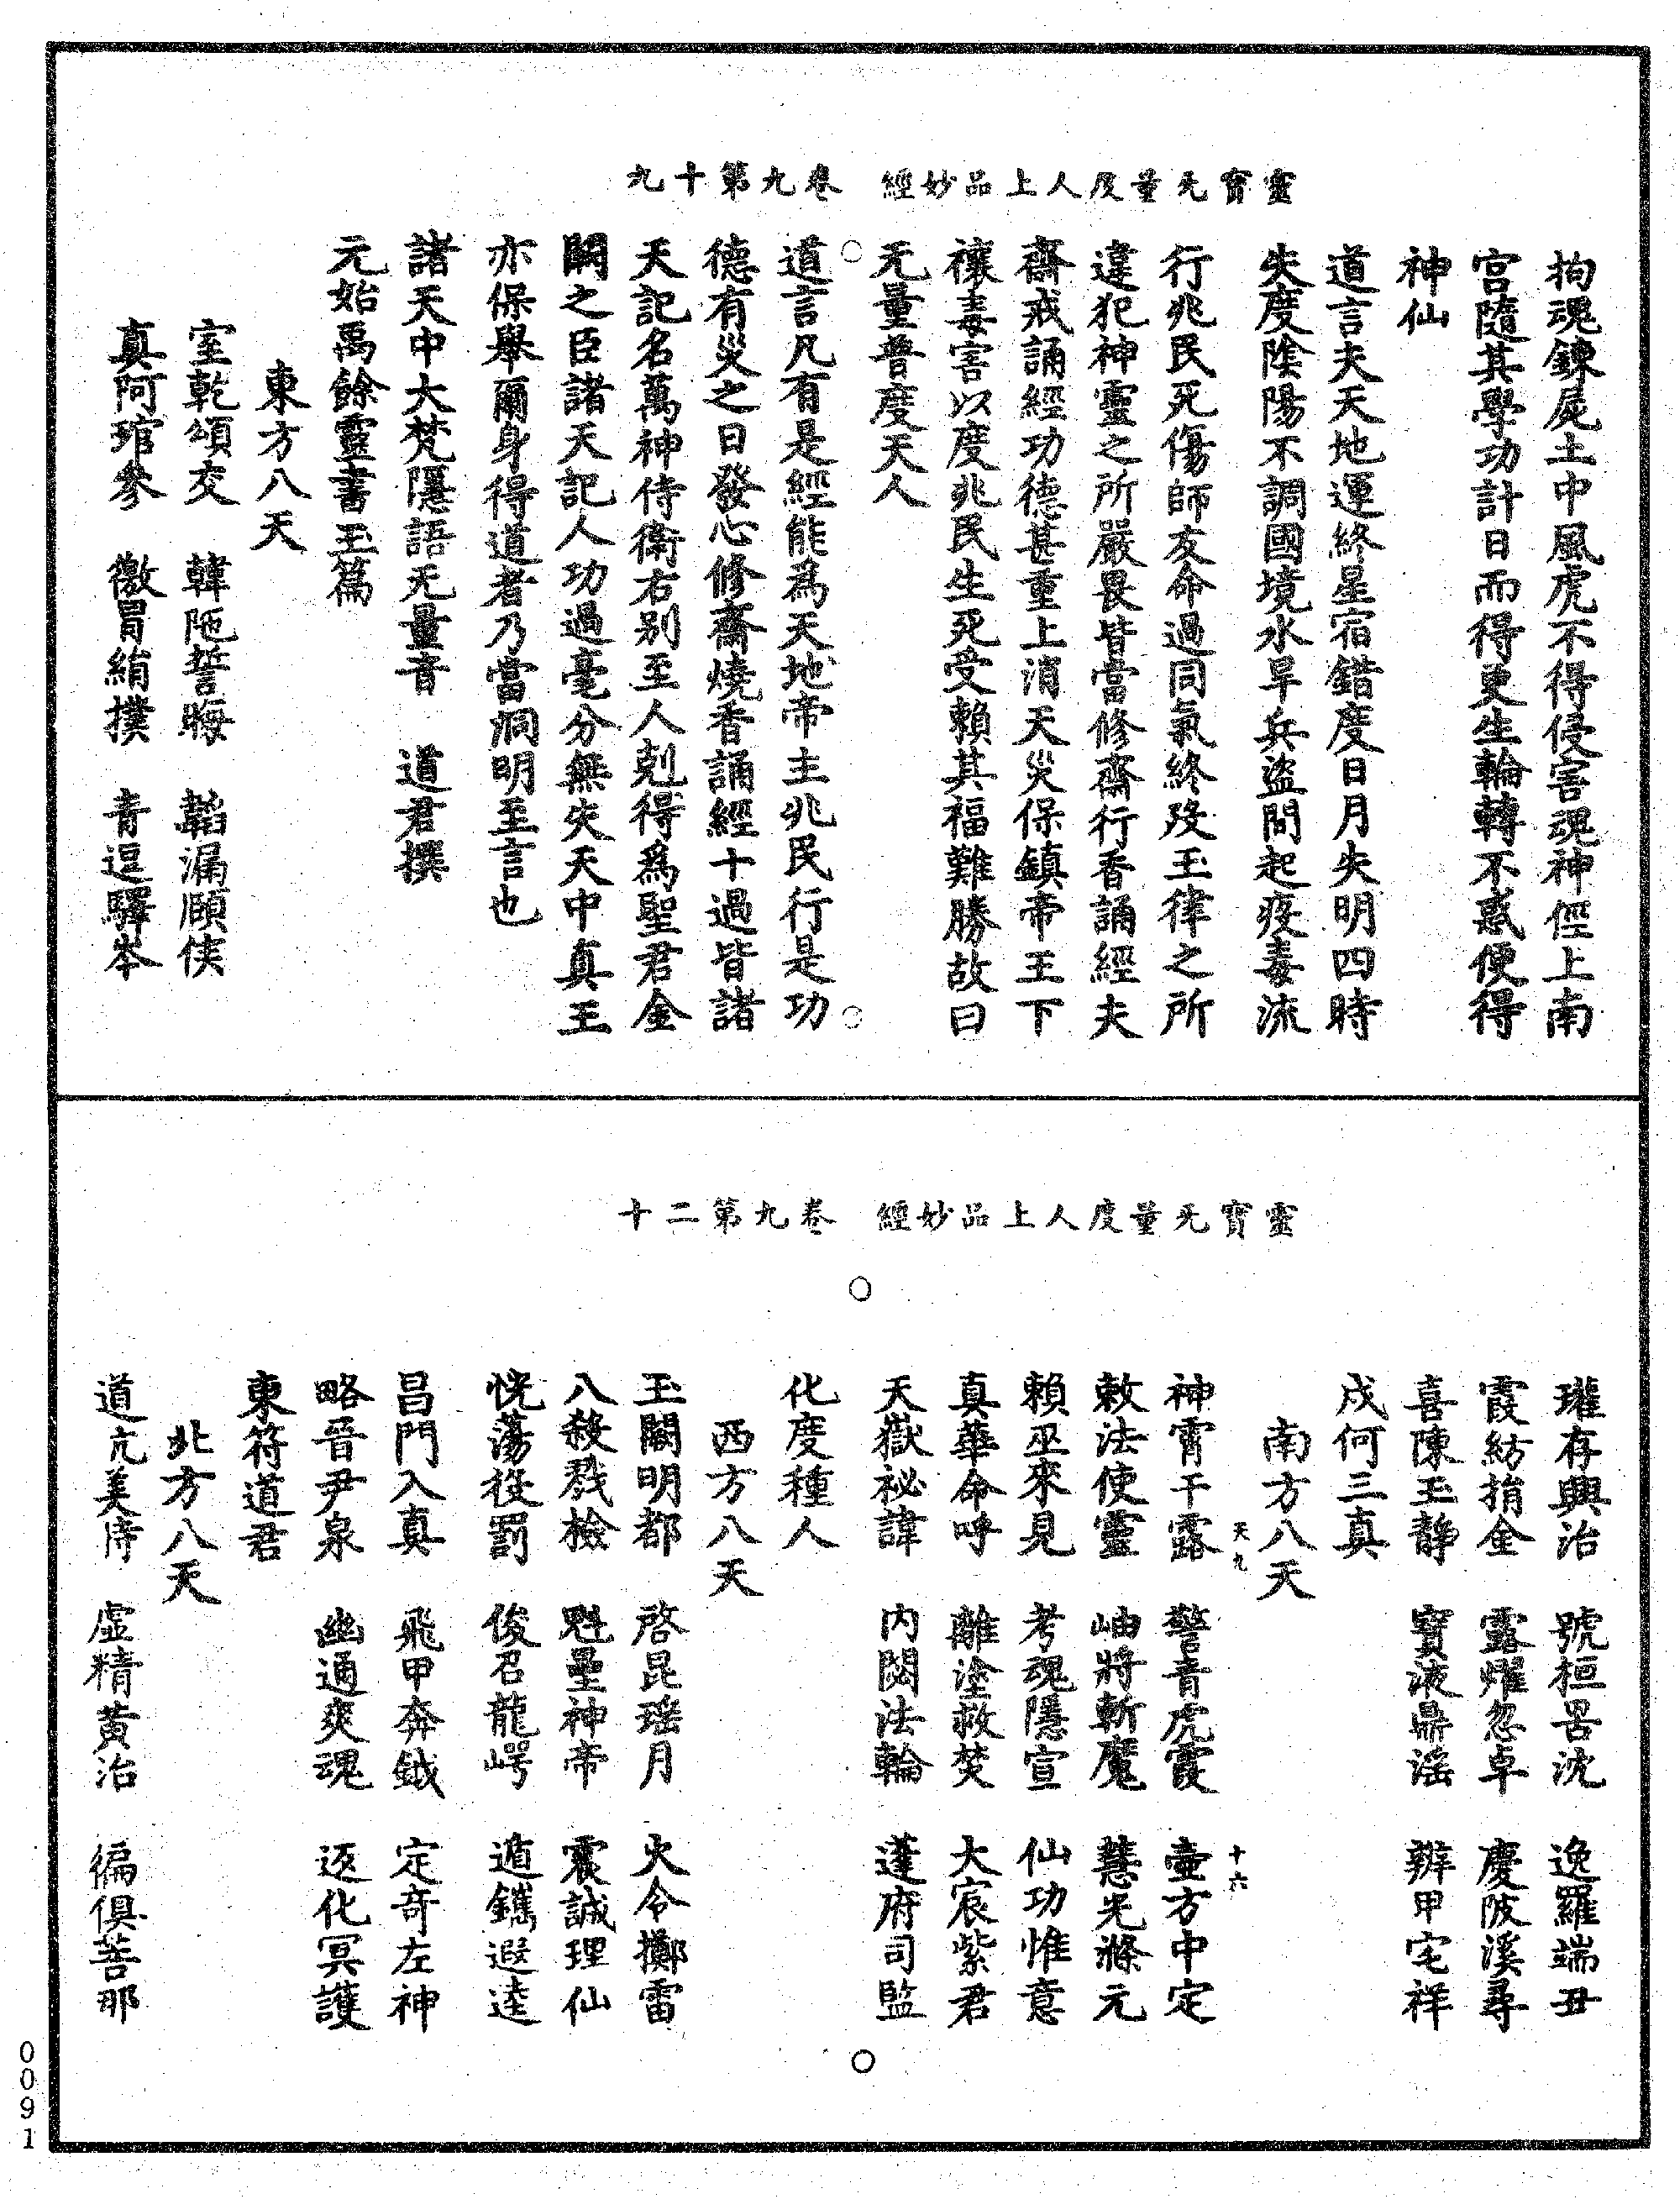 靈寶无量度人上品妙經　卷九第十九
拘魂鍊屍土中風虎不得侵害魂神徑上南
宮隨其學功計日而得更生輪轉不惑便得
神仙
道言夫天地運終星宿錯度日月失明四時
失度陰陽不調國境水旱兵盜間起疫毒流
行兆民死傷師友命過同氣終歿玉律之所
違犯神靈之所嚴畏皆當修齋行香誦經夫
齋戒誦經功德甚重上消天災保鎮帝王下
禳毒害以度兆民生死受賴其福難勝故曰
无量普度天人
道言凡有是經能為天地帝主兆民行是功
德有災之日發心修齋燒香誦經十過皆諸
天記名萬神侍衛右別至人剋得為聖君金
闕之臣諸天記人功過毫分無失天中真王
亦保舉爾身得道者乃當洞明至言也
諸天中大梵隱語无量音　道君撰
元始禹餘靈書玉篇
東方八天
室乾頌交　韓陁誓晦　韜漏頤俠
真阿琯參　徽冐綃撲　青逗驛岑
靈寶无量度人上品妙經　卷九第二十
瓘存興治　號桓罟沈　逸羅端丑
霞紡捐金　露燿忽卓　慶陂溪尋
喜陳玉靜　寶液鼎謠　辨甲宅祥
成何三真
南方八天
天九　十六
神霄干露　警音虎霞　壷方中定
敕法使靈　岫將斬魔　慧光滌元
賴巫來見　考魂隱宣　仙功惟意
真華命呼　離塗救焚　大宸紫君
天嶽祕諱　内閟法輪　蓬府司監
化度種人
西方八天
玉闕明都　啓昆瑶月　火令擲雷
八殺戮檢　魁罡神帝　震誠理仙
恍蕩役罰　俊召龍崿　遁鑴遐逵
昌門入真　飛甲奔鉞　定奇左神
略晉尹泉　幽通爽魂　返化冥護
東符道君
北方八天
道亢美庤　虛精黄治　徧俱菩那
0091